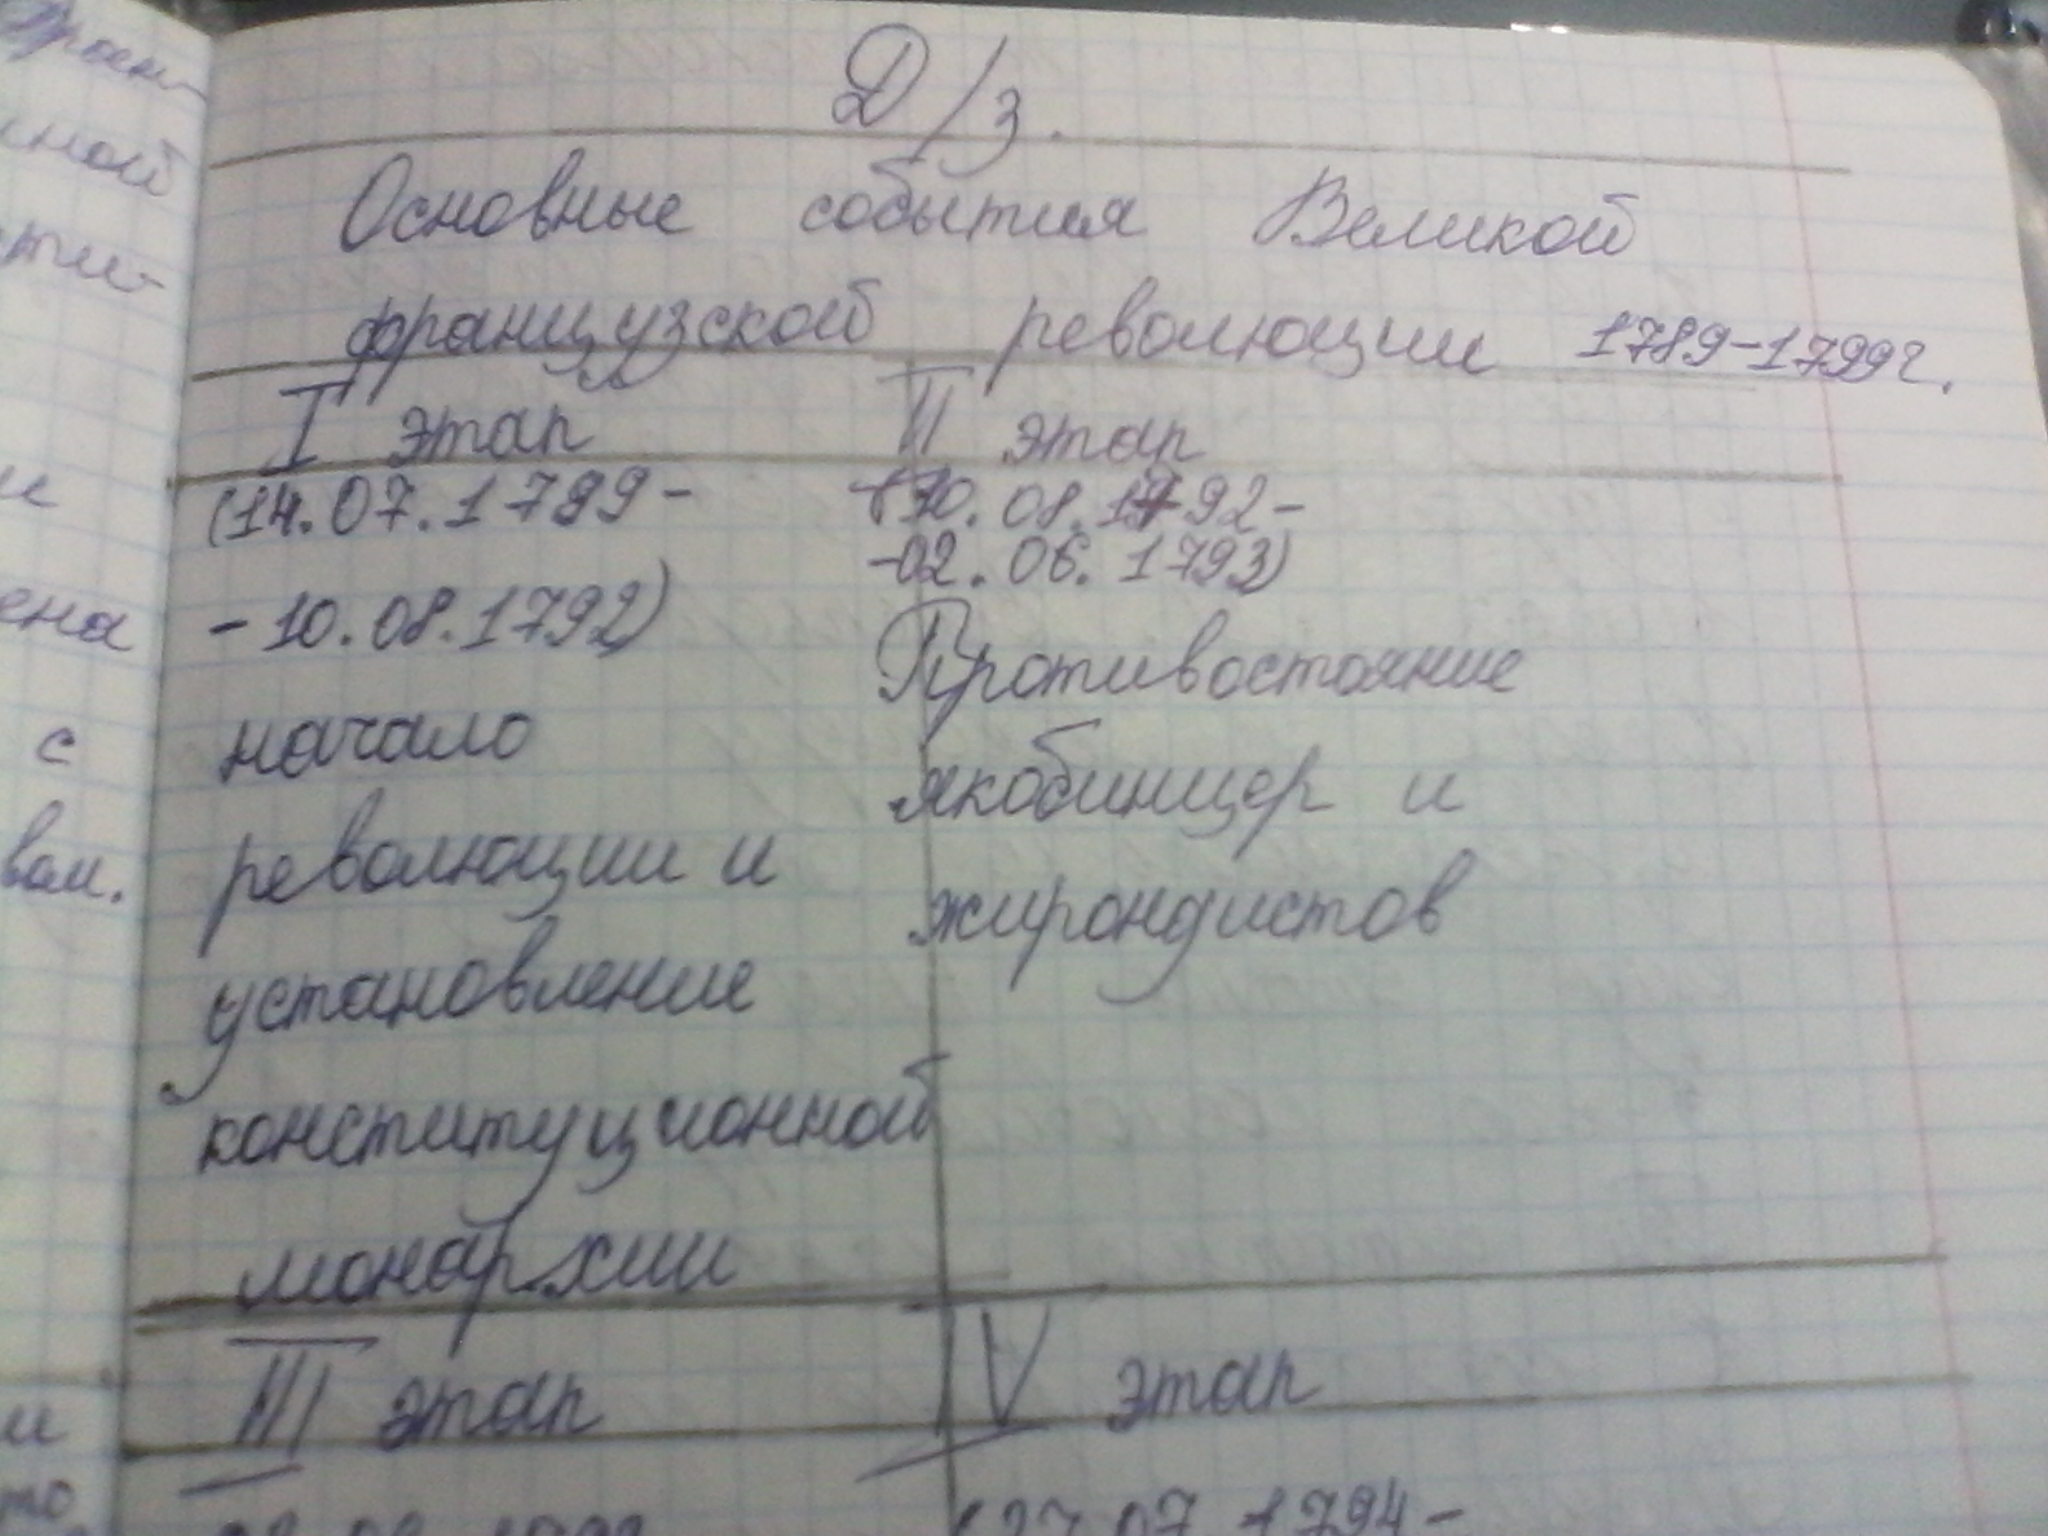 Д/з.
Основные события Великой
французской революции 1789-1799г.
I этап
(14.07.1799-
-10.08.1792)
начало
революции и
установление
конституционной
монархии
II этап
(10.08.1792-
-02.06.1793)
Противостояние
якобинцер и
жирондистов
III этап
IV этап
(27.07.1794-
ной
сти-
и
ена
с
вом.
и